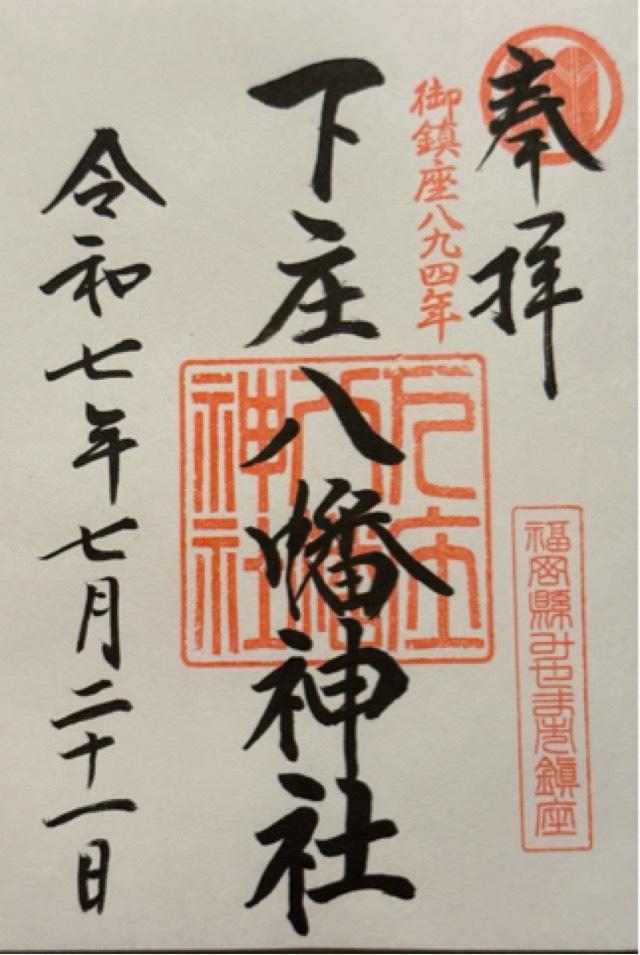 奉拝
御鎮座八九四年
福岡縣みやま市鎮座
下庄八幡神社
下庄八幡神社
令和七年七月二十一日